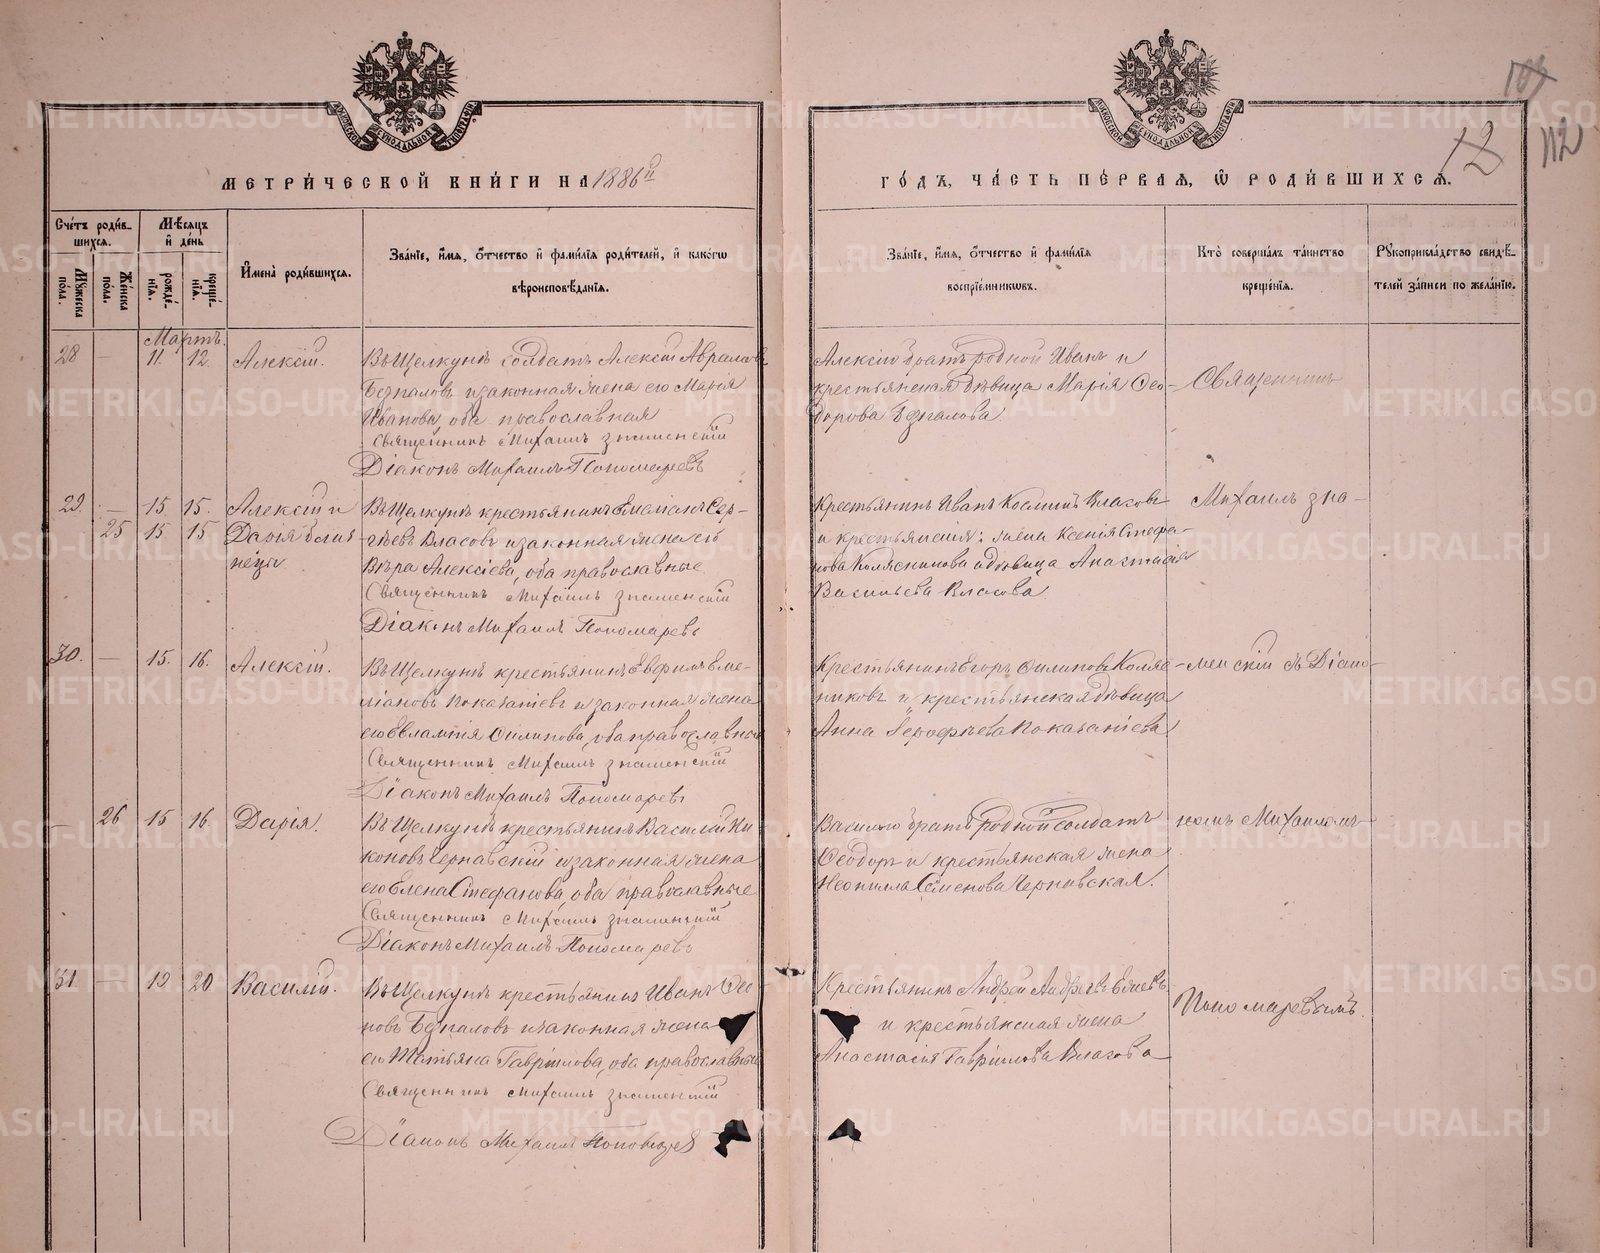 МЕТРИ́ЧЕСКОЙ КНИ́ГИ НА 1886й
ГО́ДЪ, ЧА́СТЬ ПЕ́РВАЯ, Ѡ РОДИ́ВШИХСЯ.
12
112
Сче́тъ роди́в-
шихся.
Мѣ́сяцъ
и҆ де́нь
Му́жеска по́ла.
Же́нска по́ла.
рожде́-
нїя.
креще́-
нїя.
И҆мена̀ роди́вшихся.
Зва́нїе, и҆́мя, о҆́тчество и҆ фами́лїя роди́телей, и҆ како́гѡ
вѣроисповѣ́данїя.
Зва́нїе, и҆́мя, о҆́тчество и҆ фами́лїя
воспрїе́мникѡвъ.
Кто̀ соверша́лъ та́инство
креще́нїя.
Рꙋкоприкла́дство свидѣ́-
телей за́писи по жела́нїю.
Мартъ.
28 — 11. 12. Алексій.
Въ Щелкунѣ солдатъ Алексій Аврамовъ
Безпаловъ и законная жена его Марія
Иванова, оба православная
Священникъ Михаилъ Знаменскій
Діаконъ Михаилъ Пономаревъ
Алексію братъ родной Иванъ и
крестьянская дѣвица Марія Ѳео-
дорова Безпалова.
Священникъ
29. — 15. 15. Алексій и
25 15 15 Дарія близ
нецы
Въ Щелкунѣ крестьянинъ Емелианъ Сер-
гѣевъ Власовъ и законная жена его
Вѣра Алексіева, оба православные
Священникъ Михаилъ Знаменскій
Діаконъ Михаилъ Пономаревъ
Крестьянинъ Иванъ Косминъ Власовъ
и крестьянскія: жена Ксенія Стефа-
нова Колясникова и дѣвица Анастасія
Васильева Власова
Михаилъ Зна-
30. — 15. 16. Алексій.
Въ Щелкунѣ крестьянинъ Евфимъ Еме-
ліановъ Показаніевъ и законная жена
его Евлампія Филипова, оба православные
Священникъ Михаилъ Знаменскій
Діаконъ Михаилъ Пономаревъ
Крестьянинъ Егоръ Филиповъ Коляс-
никовъ и крестьянская дѣвица
Анна Ерофѣева Показаніева
менскій съ Діако-
— 26 15 16 Дарія.
Въ Щелкунѣ крестьянинъ Василій Ни-
коновъ Чернавскій и законная жена
его Елена Стефанова, оба православные
Священникъ Михаилъ Знаменскій
Діаконъ Михаилъ Пономаревъ
Василію братъ родной солдатъ
Ѳеодоръ и крестьянская жена
Неонилла Семенова Чернавская.
номъ Михаиломъ
31 — 19. 20 Василій.
Въ Щелкунѣ крестьянинъ Иванъ Ѳео-
новъ Безпаловъ и законная жена
его Татьяна Гавріилова, оба православные
Священникъ Михаилъ Знаменскій
Діаконъ Михаилъ Пономаревъ
Крестьянинъ Андрей Андреевъ
и крестьянская жена
Анастасія Гавріилова Власова
Пономаревымъ.
METRIKI.GASO-URAL.RU